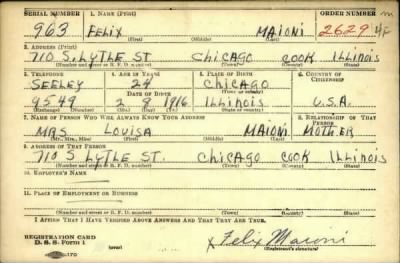 SERIAL NUMBER 1. NAME (Print) ORDER NUMBER
963 FELIX MAIONI 2629 4F
(First) (Middle) (Last)
2. ADDRESS (Print)
710 S. LYTLE ST CHICAGO COOK ILLINOIS
(Number and street or R. F. D. number) (Town) (County) (State)
3. TELEPHONE 4. AGE IN YEARS 5. PLACE OF BIRTH 6. COUNTRY OF CITIZENSHIP
SEELEY 24 CHICAGO
DATE OF BIRTH (Town or county)
9549 2 8 1916 ILLINOIS U.S.A.
(Exchange) (Number) (Mo.) (Day) (Yr.) (State or country)
7. NAME OF PERSON WHO WILL ALWAYS KNOW YOUR ADDRESS 8. RELATIONSHIP OF THAT PERSON
MRS LOUISA MAIONI MOTHER
(Mr., Mrs., Miss) (First) (Middle) (Last)
9. ADDRESS OF THAT PERSON
710 S LYTLE ST. CHICAGO COOK ILLINOIS
(Number and street or R. F. D. number) (Town) (County) (State)
10. EMPLOYER'S NAME
11. PLACE OF EMPLOYMENT OR BUSINESS
(Number and street or R. F. D. number) (Town) (County) (State)
I AFFIRM THAT I HAVE VERIFIED ABOVE ANSWERS AND THAT THEY ARE TRUE.
REGISTRATION CARD
D. S. S. Form 1 (over) X Felix Maioni
(Registrant's signature)